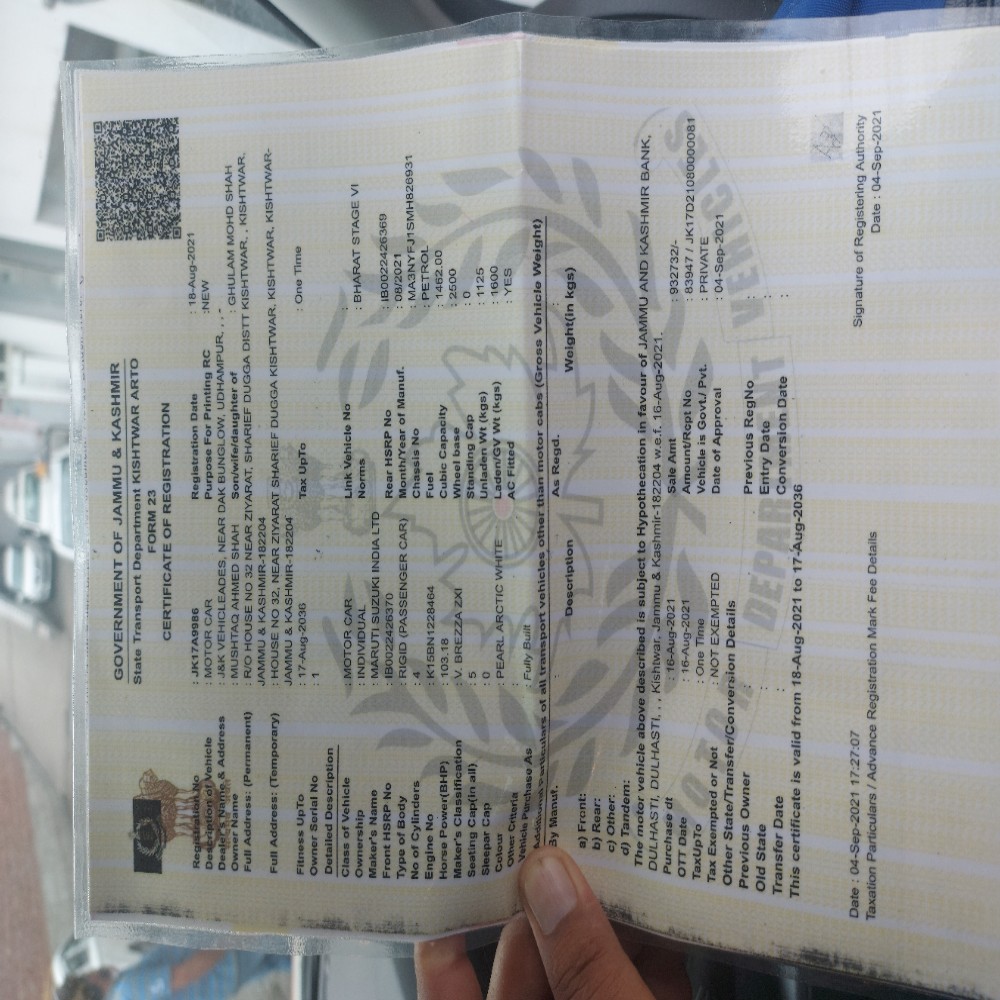 GOVERNMENT OF JAMMU & KASHMIR
State Transport Department KISHTWAR ARTO
FORM 23
CERTIFICATE OF REGISTRATION
Registration No : JK17A9986 Registration Date : 18-Aug-2021
Description of Vehicle : MOTOR CAR Purpose For Printing RC :NEW
Dealer's Name & Address : J&K VEHICLEADES, NEAR DAK BUNGLOW, UDHAMPUR, , , -
Owner Name : MUSHTAQ AHMED SHAH Son/wife/daughter of : GHULAM MOHD SHAH
Full Address: (Permanent) : R/O HOUSE NO 32 NEAR ZIYARAT, SHARIEF DUGGA DISTT KISHTWAR, , KISHTWAR,
JAMMU & KASHMIR-182204
Full Address: (Temporary) : HOUSE NO 32, NEAR ZIYARAT SHARIEF DUGGA KISHTWAR, KISHTWAR, KISHTWAR-
JAMMU & KASHMIR-182204
Fitness UpTo : 17-Aug-2036 Tax UpTo : One Time
Owner Serial No : 1
Detailed Description
Class of Vehicle : MOTOR CAR Link Vehicle No
Ownership : INDIVIDUAL Norms : BHARAT STAGE VI
Maker's Name : MARUTI SUZUKI INDIA LTD
Front HSRP No : IB0022426370 Rear HSRP No : IB0022426369
Type of Body : RIGID (PASSENGER CAR) Month/Year of Manuf. : 08/2021
No of Cylinders : 4 Chassis No : MA3NYFJ1SMH826931
Engine No : K15BN1228464 Fuel : PETROL
Horse Power(BHP) : 103.18 Cubic Capacity : 1462.00
Maker's Classification : V. BREZZA ZXI Wheel base : 2500
Seating Cap(in all) : 5 Standing Cap : 0
Sleepar Cap : 0 Unladen Wt (kgs) : 1125
Colour : PEARL ARCTIC WHITE Laden/GV Wt (kgs) : 1600
Other Criteria : AC Fitted : YES
Vehicle Purchase As : Fully Built
Additional Particulars of all transport vehicles other than motor cabs (Gross Vehicle Weight)
By Manuf. : Description As Regd. Weight(in kgs)
a) Front:
b) Rear:
c) Other:
d) Tandem:
The motor vehicle above described is subject to Hypothecation in favour of JAMMU AND KASHMIR BANK,
DULHASTI, DULHASTI, , , Kishtwar, Jammu & Kashmir-182204 w.e.f. 16-Aug-2021.
Purchase dt : 16-Aug-2021 Sale Amt : 932732/-
OTT Date : 16-Aug-2021 Amount/Rcpt No : 83947 / JK17D21080000081
TaxUpTo : One Time Vehicle is Govt./ Pvt. : PRIVATE
Tax Exempted or Not : NOT EXEMPTED Date of Approval : 04-Sep-2021
Other State/Transfer/Conversion Details
Previous Owner : Previous RegNo :
Old State : Entry Date :
Transfer Date : Conversion Date :
This certificate is valid from 18-Aug-2021 to 17-Aug-2036
Signature of Registering Authority
Date : 04-Sep-2021 17:27:07 Date : 04-Sep-2021
Taxation Particulars / Advance Registration Mark Fee Details
DEPARTMENT VEHICLES